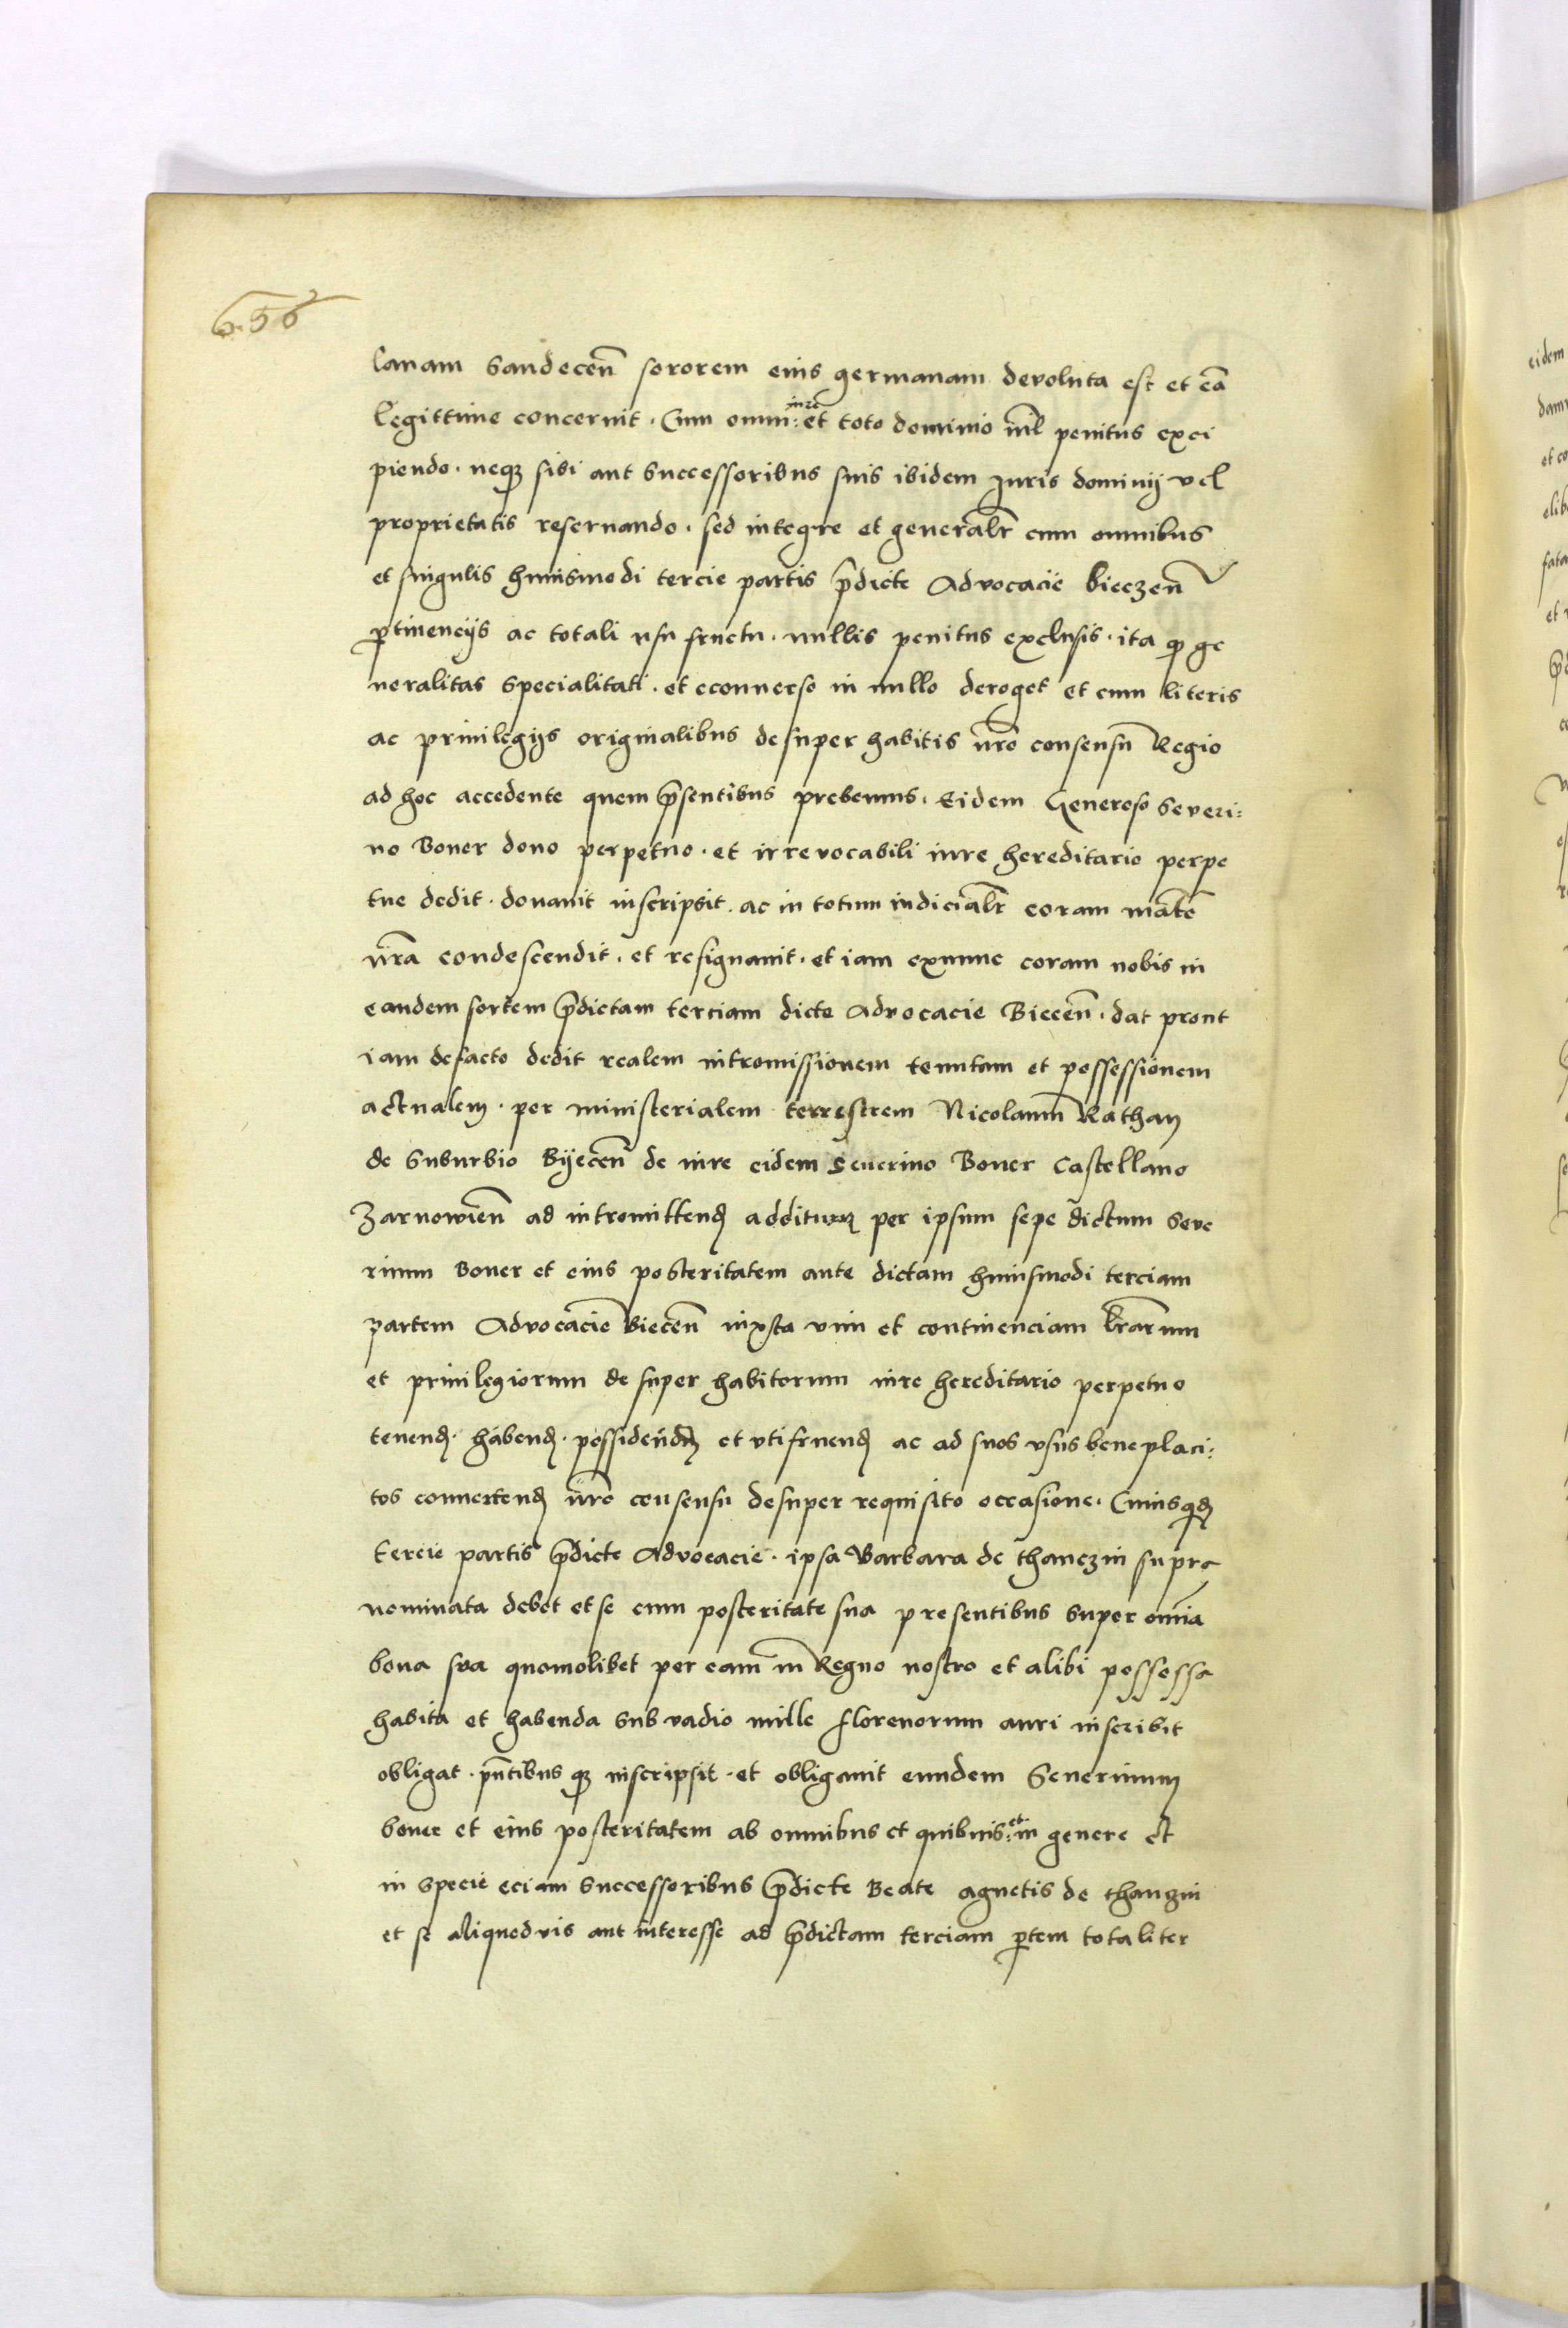 656
lanam Sandeceñ sororem eius germanam devoluta est et eã
legittime concernit. Cum omni iure et toto dominio nil̃ penitus exci
piendo. neqȝ sibi aut successoribus suis ibidem Iuris dominij vel
proprietatis reseruando. sed integre et generalr̃ cum omnibus
et singulis huiusmodi tercie partis p̃dicte Advocacie bieczeñ
ptinencijs ac totali usu fructu. nullis penitus exclusis. ita qȝ ge
neralitas specialitati. et econuerso in nullo deroget et cum literis
ac priuilegijs originalibus desuper habitis nr̃o consensu Regio
ad hoc accedente quem p̃sentibus prebemus. Eidem Generoso Severi:
no Boner dono perpetuo. et irrevocabili iure hereditario perpe
tue dedit. donauit inscripsit. ac in totum iudicialr̃ coram ma̅te
nr̃a condescendit. et resignauit. et iam exnunc coram nobis in
eandem sortem p̃dictam terciam dicte Advocacie Bieceñ. dat prout
iam defacto dedit realem intromissionem tenutam et possessionem
actualem. per ministerialem terrestrem Nicolaum Rathay
de Suburbio Bijeceñ de iure eidem Seuerino Boner Castellano
Zarnowieñ ad intromittend̃ additum per ipsum sepe dictum Seve
rinum Boner et eius posteritatem ante dictam huiusmodi terciam
partem Advocacie Bieceñ iuxta vim et continenciam lr̃arum
et priuilegiorum desuper habitorum iure hereditario perpetuo
tenend̃. habend̃. possidend̃ et vtifruend̃ ac ad suos vsus beneplaci:
tos conuertend̃ nr̃o consensu desuper requisito occasione. Cuiusqd̃
tercie partis p̃dicte Advocacie. ipsa Barbara de thanczin supra
nominata debet et se cum posteritate sua presentibus super omĩa
bona sua quomolibet per eam in Regno nostro et alibi possessa
habita et habenda sub vadio mille florenorum auri inscribit
obligat. pñtibus qȝ inscripsit. et obligauit eundem Seuerinum
boner et eius posteritatem ab omnibus et quibuis: et in genere et
in specie eciam successoribus p̃dicte Beate agnetis de thanzin
et se aliquod vis aut interesse ad p̃dictam terciam ptem totaliter